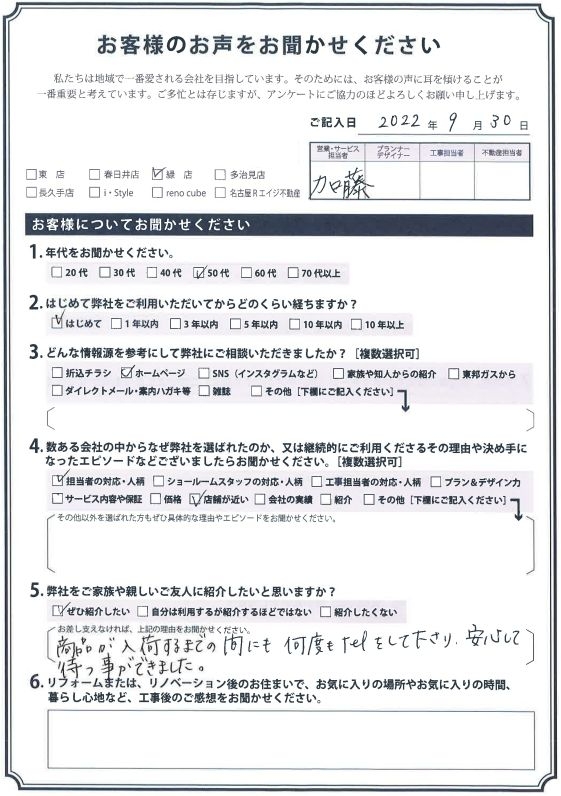 お客様のお声をお聞かせください
私たちは地域で一番愛される会社を目指しています。そのためには、お客様の声に耳を傾けることが
一番重要と考えています。ご多忙とは存じますが、アンケートにご協力のほどよろしくお願い申し上げます。
ご記入日 2022 年 9 月 30 日
営業・サービス担当者 プランナーデザイナー 工事担当者 不動産担当者
加藤
□東 店 □春日井店 ☑緑 店 □多治見店
□長久手店 □i・Style □reno cube □名古屋Rエイジ不動産
お客様についてお聞かせください
1. 年代をお聞かせください。
□20代 □30代 □40代 ☑50代 □60代 □70代以上
2. はじめて弊社をご利用いただいてからどのくらい経ちますか？
☑はじめて □1年以内 □3年以内 □5年以内 □10年以内 □10年以上
3. どんな情報源を参考にして弊社にご相談いただきましたか？［複数選択可］
□折込チラシ ☑ホームページ □SNS（インスタグラムなど） □家族や知人からの紹介 □東邦ガスから
□ダイレクトメール・案内ハガキ等 □雑誌 □その他［下欄にご記入ください］
4. 数ある会社の中からなぜ弊社を選ばれたのか、又は継続的にご利用くださるその理由や決め手に
なったエピソードなどございましたらお聞かせください。［複数選択可］
☑担当者の対応・人柄 □ショールームスタッフの対応・人柄 □工事担当者の対応・人柄 □プラン＆デザイン力
□サービス内容や保証 □価格 ☑店舗が近い □会社の実績 □紹介 □その他［下欄にご記入ください］
その他以外を選ばれた方もぜひ具体的な理由やエピソードをお聞かせください。
5. 弊社をご家族や親しいご友人に紹介したいと思いますか？
☑ぜひ紹介したい □自分は利用するが紹介するほどではない □紹介したくない
お差し支えなければ、上記の理由をお聞かせください。
商品が入荷するまでの間にも何度もtelをして下さり、安心して
待つ事ができました。
6. リフォームまたは、リノベーション後のお住まいで、お気に入りの場所やお気に入りの時間、
暮らし心地など、工事後のご感想をお聞かせください。